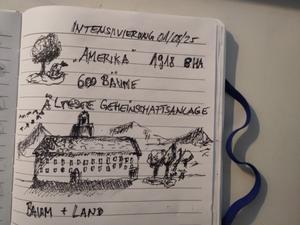 INTENSIVIERUNG 01/08/25
„AMERIKA" 1918 BHA
600 BÄUME
ÄLTESTE GEMEINSCHAFTSANLAGE
BAUM + LAND